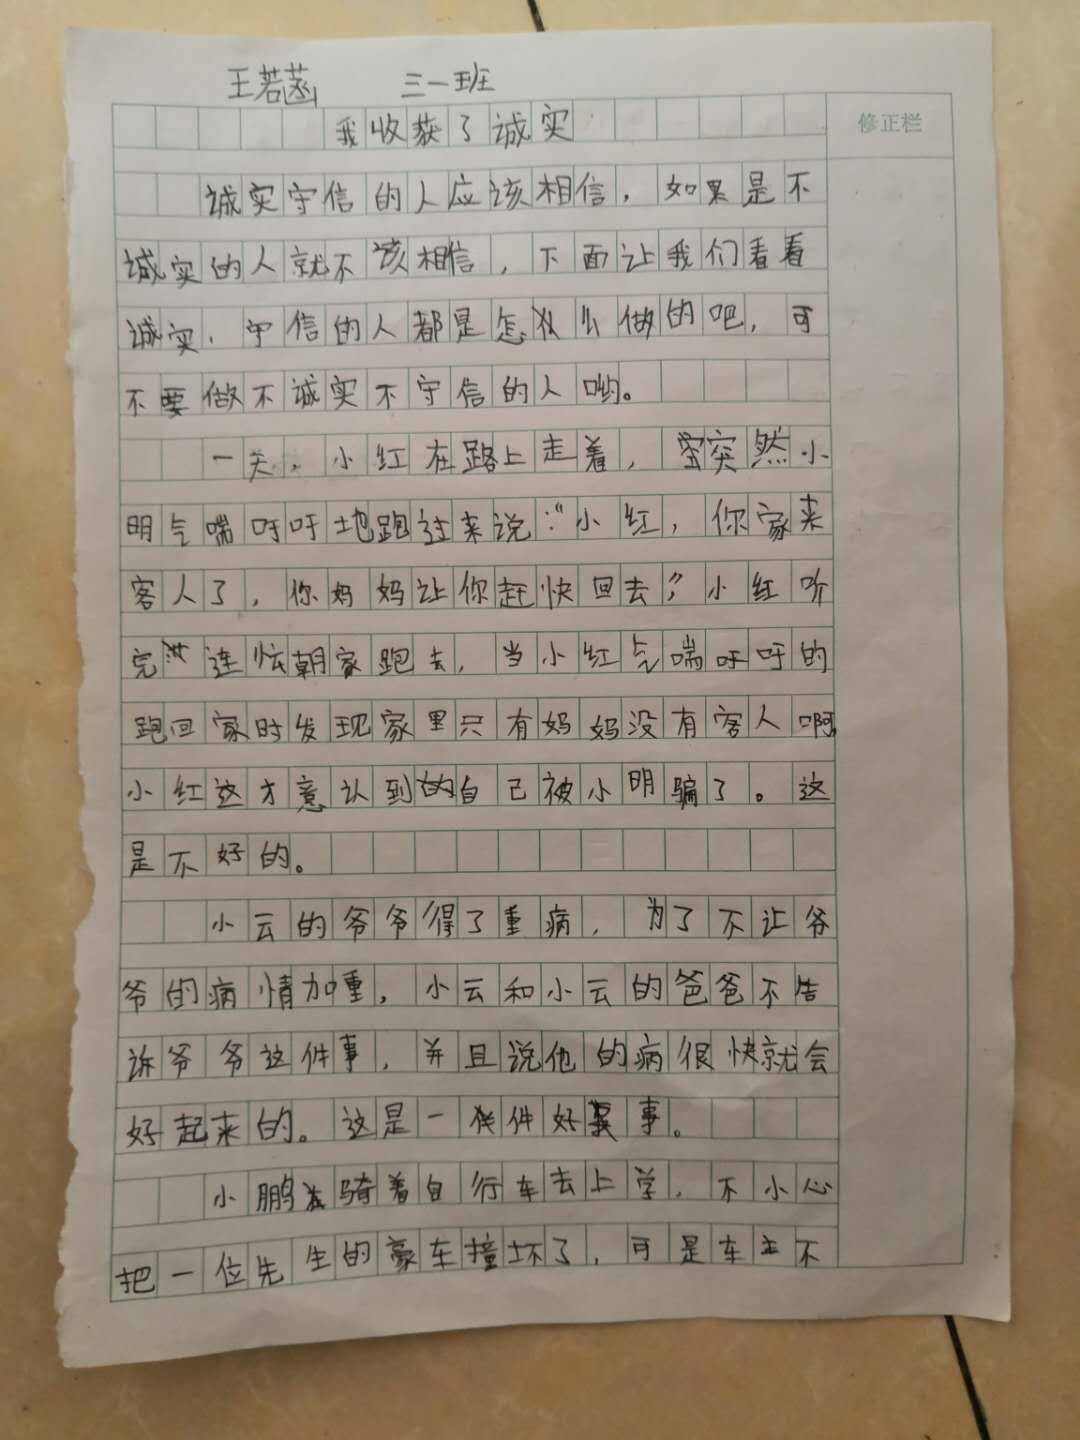 王若菡 三一班
修正栏
我收获了诚实
诚实守信的人应该相信，如果是不
诚实的人就不该相信，下面让我们看看
诚实、守信的人都是怎么做的吧，可
不要做不诚实不守信的人哟。
一天，小红在路上走着，突然小
明气喘吁吁地跑过来说："小红，你家来
客人了，你妈妈让你赶快回去，"小红听
完连忙朝家跑去，当小红气喘吁吁的
跑回家时发现家里只有妈妈没有客人啊
小红这才意认到自己被小明骗了。这
是不好的。
小云的爷爷得了重病，为了不让爷
爷的病情加重，小云和小云的爸爸不告
诉爷爷这件事，并且说他的病很快就会
好起来的。这是一件好事。
小鹏骑着自行车去上学，不小心
把一位先生的豪车撞坏了，可是车主不